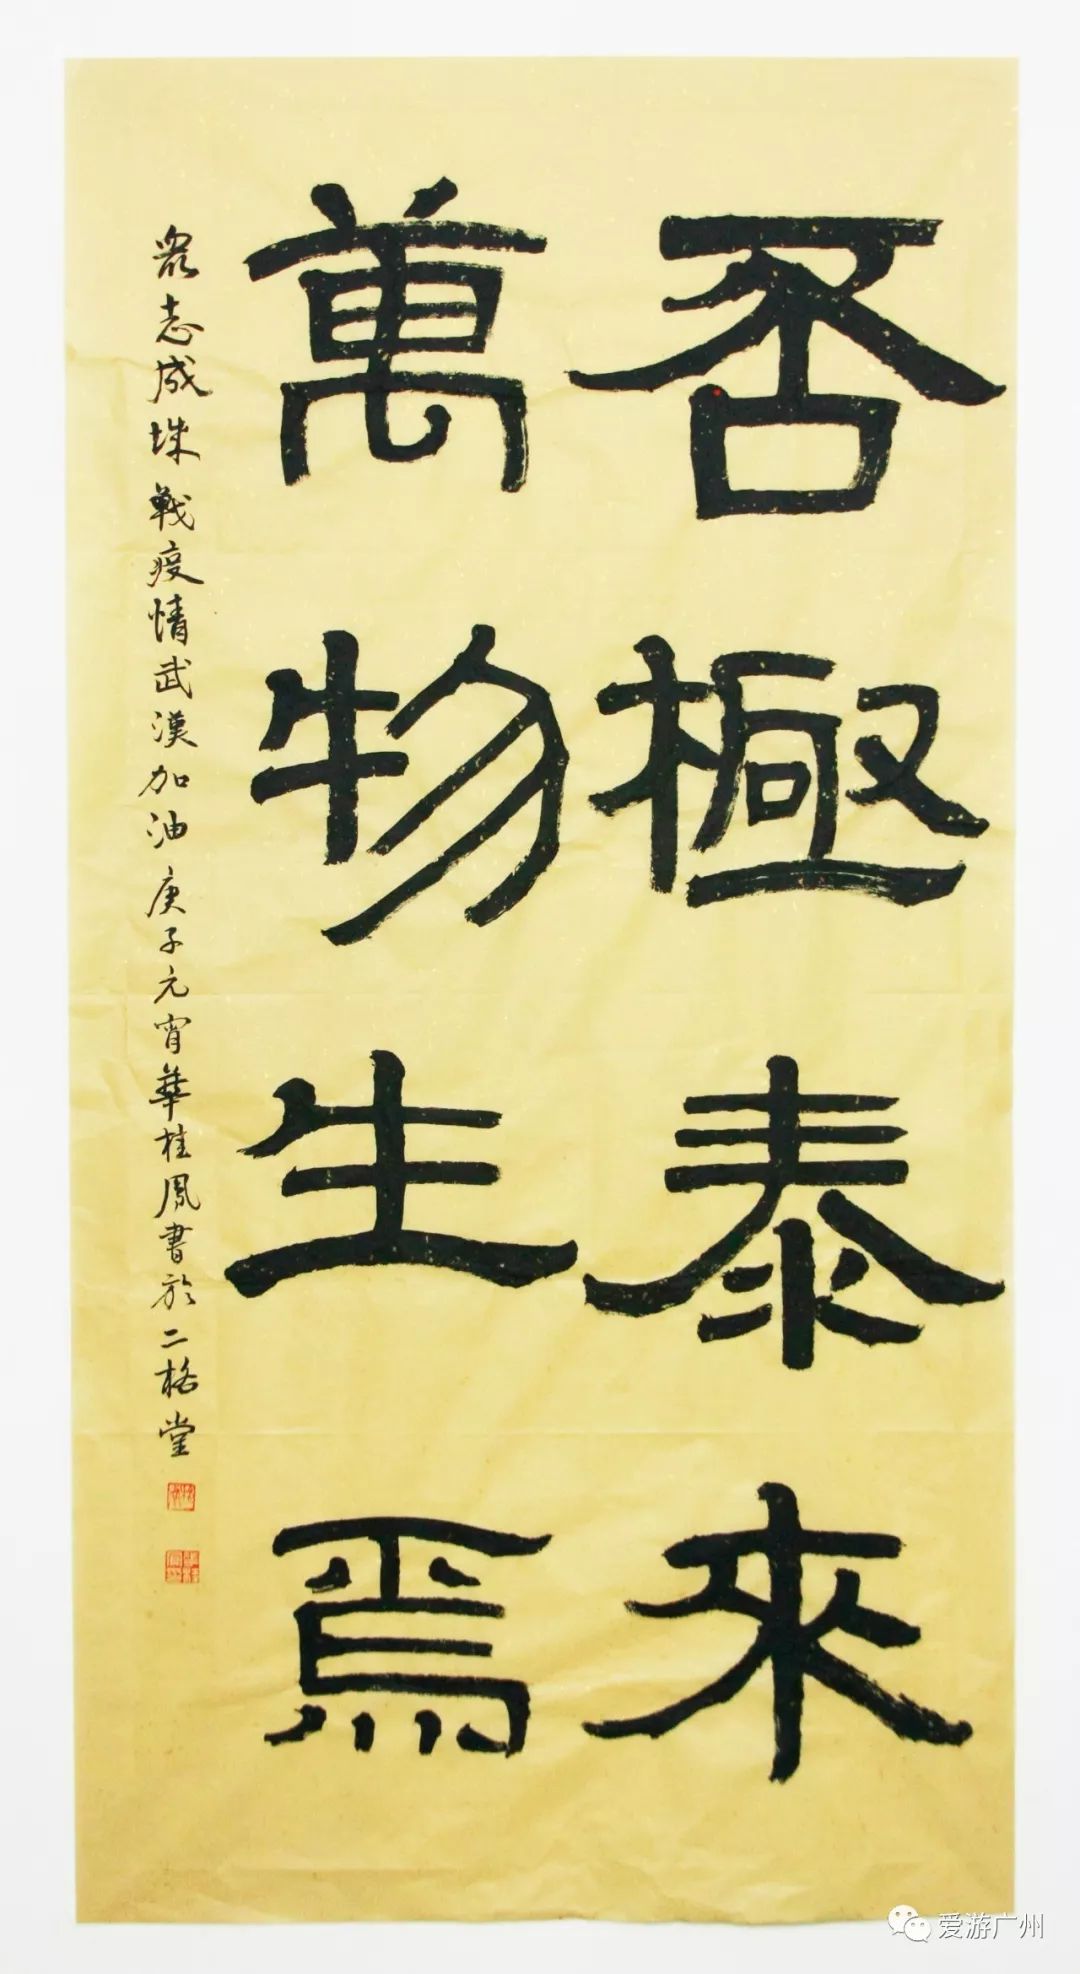 否極泰來
萬物生焉
眾志成城戰疫情武漢加油庚子元宵華桂鳳書於二格堂
爱游广州